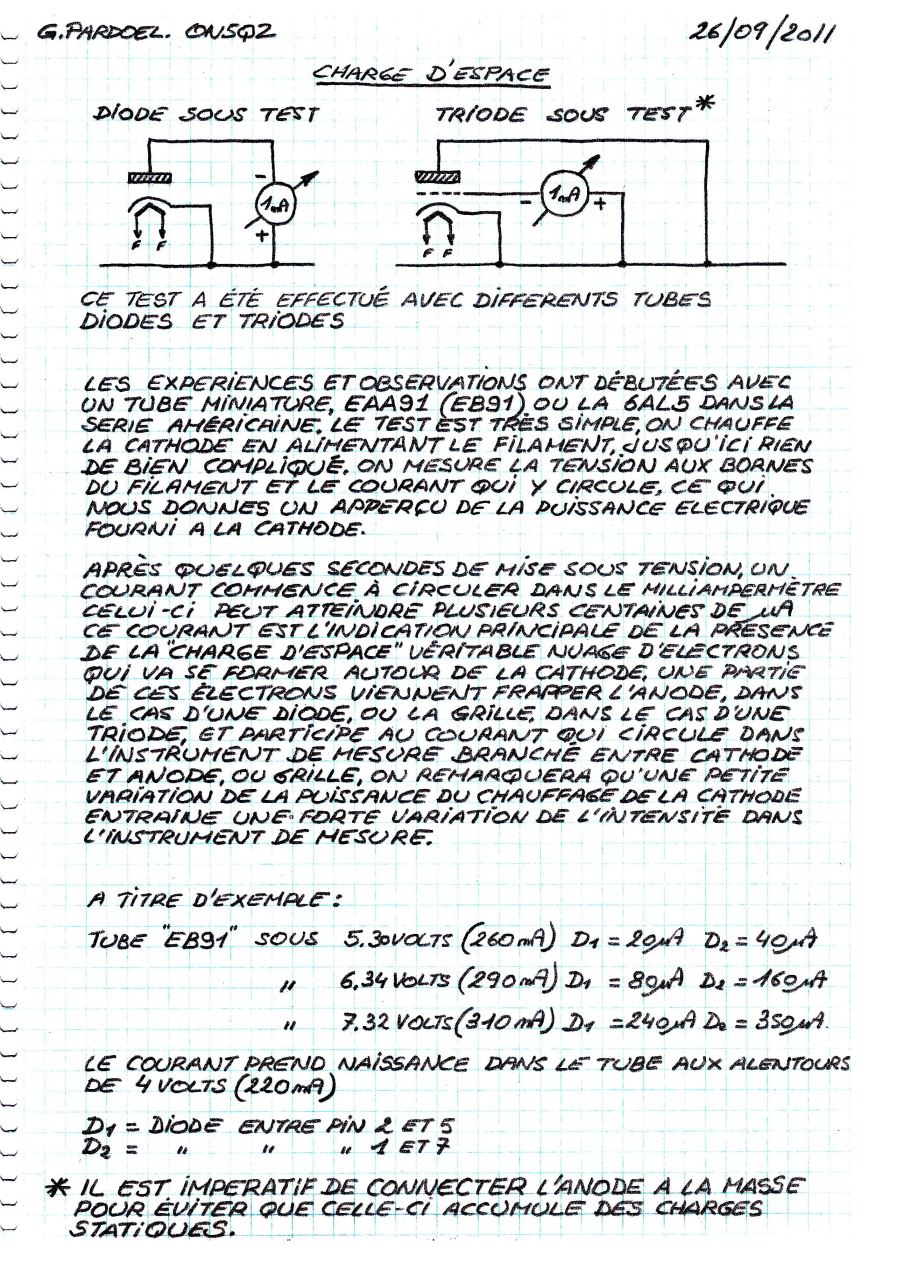 G.PARDOEL. ON5QZ 26/09/2011
CHARGE D'ESPACE
DIODE SOUS TEST TRIODE SOUS TEST*
- 1mA +
F F
- 1mA +
F F
CE TEST A ÉTÉ EFFECTUÉ AVEC DIFFERENTS TUBES
DIODES ET TRIODES
LES EXPERIENCES ET OBSERVATIONS ONT DÉBUTÉES AVEC
UN TUBE MINIATURE, EAA91 (EB91) OU LA 6AL5 DANS LA
SERIE AMÉRICAINE. LE TEST EST TRÈS SIMPLE, ON CHAUFFE
LA CATHODE EN ALIMENTANT LE FILAMENT, JUSQU'ICI RIEN
DE BIEN COMPLIQUÉ. ON MESURE LA TENSION AUX BORNES
DU FILAMENT ET LE COURANT QUI Y CIRCULE, CE QUI
NOUS DONNES UN APPERÇU DE LA PUISSANCE ELECTRIQUE
FOURNI A LA CATHODE.
APRÈS QUELQUES SECONDES DE MISE SOUS TENSION, UN
COURANT COMMENCE À CIRCULER DANS LE MILLIAMPERMÈTRE
CELUI-CI PEUT ATTEINDRE PLUSIEURS CENTAINES DE µA
CE COURANT EST L'INDICATION PRINCIPALE DE LA PRÉSENCE
DE LA "CHARGE D'ESPACE" VÉRITABLE NUAGE D'ELECTRONS
QUI VA SE FORMER AUTOUR DE LA CATHODE, UNE PARTIE
DE CES ÉLECTRONS VIENNENT FRAPPER L'ANODE, DANS
LE CAS D'UNE DIODE, OU LA GRILLE, DANS LE CAS D'UNE
TRIODE, ET PARTICIPE AU COURANT QUI CIRCULE DANS
L'INSTRUMENT DE MESURE BRANCHÉ ENTRE CATHODE
ET ANODE, OU GRILLE, ON REMARQUERA QU'UNE PETITE
VARIATION DE LA PUISSANCE DU CHAUFFAGE DE LA CATHODE
ENTRAINE UNE FORTE VARIATION DE L'INTENSITÉ DANS
L'INSTRUMENT DE MESURE.
A TITRE D'EXEMPLE :
TUBE "EB91" SOUS 5.30 VOLTS (260 mA) D1 = 20µA D2 = 40µA
" 6,34 VOLTS (290 mA) D1 = 80µA D2 = 160µA
" 7.32 VOLTS (310 mA) D1 = 240µA D2 = 350µA.
LE COURANT PREND NAISSANCE DANS LE TUBE AUX ALENTOURS
DE 4 VOLTS (220mA)
D1 = DIODE ENTRE PIN 2 ET 5
D2 = " " " 1 ET 7
* IL EST IMPERATIF DE CONNECTER L'ANODE A LA MASSE
POUR ÉVITER QUE CELLE-CI ACCUMULE DES CHARGES
STATIQUES.